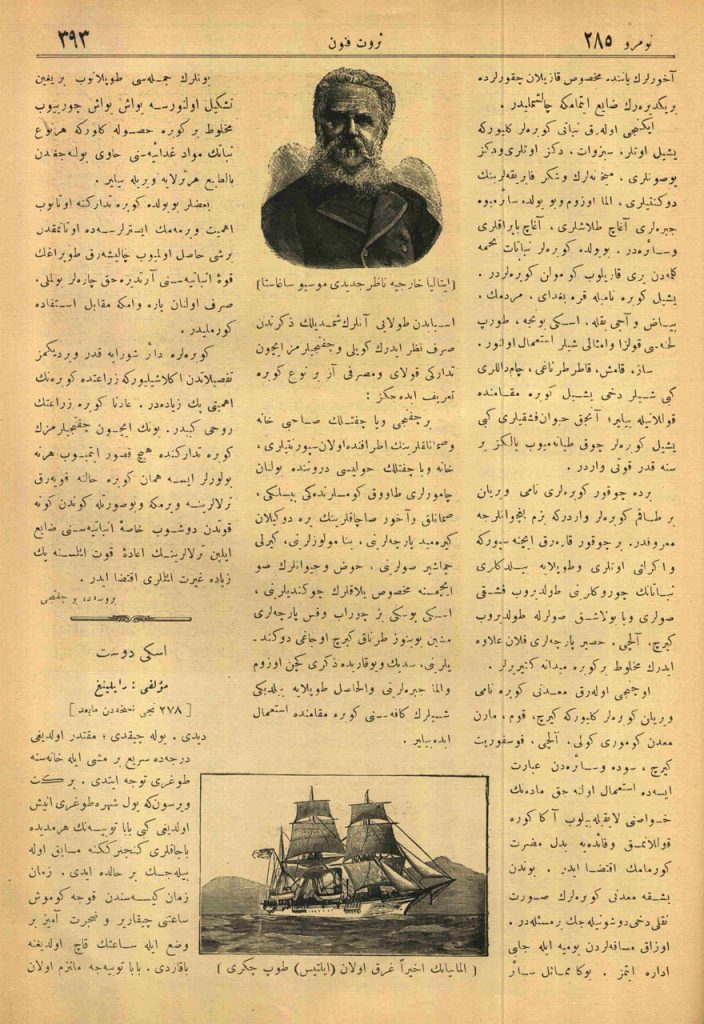 نومرو ٢٨٥
ثروت فنون
٣٩٣
آخورلرك یاننده مخصوص قازیلان چقورلرده
بریكدیرەرك ضایع ایتمامكه چالشملیدر .
ایكنجی اولەرق نباتی كوبره‌لر كلیوركه
یشیل اوتلر ، سبزوات ، دكز اوتلری ودكز
یوصونلری ، میخانه‌لرك وشكر فابریقه‌لرینك
دوكنتیلری ، الما اوزوم وبو یولده سائر میوه
جبره‌لری آغاج طلاشلری ، آغاج یاپراقلری
وسائره‌در . بو یولده كوبره‌لر نباتات
یشیل كوبره نامیله قره بغدای ، مردمك ،
بیاض و آجی بقله ، اسكی یونجه ، طورپ
قولزا وامثالی شیلر استعمال اولنور .
ساز ، قامش ، قاطر طرناغی ، چام داللری
كبی شیلر دخی یشیل كوبره مقامنده
قوللانیله بیلیر ؛ آنجق حیوان فشقیلری كبی
یشیل كوبره‌لر چوق طیانمیوب یالكز بر
سنه قدر قوتی واردر .
برده چوقور كوبره‌لری نامی ویریلن
بر طاقم كوبره‌لر واردركه بزم باغچوانلرجه
معروفدر . بر چوقور قازەرق ایچنه سپوركه
واكراتی اوتلری وطوپلایه بیلدكلری
نباتاتك چوروكلرینی طولدیروب فشقی
صولری ویا بولاشیق صولرله طولدیروب
كیرج ، آلچی ، حصیر پارچه‌لری فلان علاوه
ایدرك مخلوط بر كوبره میدانه كتیریرلر .
اوچنجی اولەرق معدنی كوبره نامی
ویریلن كوبره‌لر كلیوركه كیرج ، قوم ، مارن
معدن كوموری كولی ، آلچی ، فوسفوریت
كیرج ، سوده وسائره‌دن عبارت
ایسه‌ده استعمال اولنه‌جق ماده‌نك
خواصنی لایقیله بیلوب آكا كوره
قوللانمق وفائده‌یه بدل مضرت
كورمامك اقتضا ایدر . بوندن
بشقه معدنی كوبره‌لرك صورت
نقلی دخی دوشونیله‌جك بر مسئله‌در .
اوزاق مسافه‌لردن بومیه ایله جلبی
اداره ایتمز . بوكا مماثل سائر
[ ایتالیا خارجیه ناظر جدیدی موسیو ساغاستا ]
اسبابدن طولایی آنلرك شمدیلك ذكرندن
صرف نظر ایدرك كویلی وچفتجیلرمز ایچون
تداركی قولای ومصرفی آز بر نوع كوبره
تعریف ایده‌جكز :
بر چفتجی ویا چفتلك صاحبی خانه
وصمانلقلرینك اطرافنده اولان
خانه ویا چفتلك حولیسی دروننده بولنان
چامورلری طاووق كومسلرنده‌كی پیسلكی ،
صمانلق وآخور صاچاقلرینك یره دوكیلان
كیره‌مید پارچه‌لرینی ، بنا مولوزلرینی ، كیرلی
چماشیر صولرینی ، حوض وحیوانلرك صو
ایچمسنه مخصوص یلاقلرك چوكندیلرینی ،
اسكی پوسكی بز چوراب وفس پارچه‌لری
مشین بوینوز طرناق كیرج اوجاغی دوكند
یلرینی ، سدیك وبوقاریده ذكری كچن اوزوم
والما جبره‌لرینی والحاصل طوپلایه بیلدیكی
شیلرك كافه‌سنی كوبره مقامنده استعمال
ایده‌بیلیر .
[ المانیانك اخیراً غرق اولان (ایلتیس) طوپ چكری ]
بونلرك جمله‌سی طوپلانوب بر یغین
تشكیل اولنورسه یواش یواش چوریوب
مخلوط بر كوبره حصوله كلوركه هر نوع
نباتك مواد غدائیه‌سنی حاوی بولنه‌جغندن
بالطبع هر ترلایه ویریله بیلیر .
بعضلر بو یولده كوبره تداركنه اوتانوب
اهمیت ویرمه‌مك ایسترلرسه‌ده اوتانمقدن
برشی حاصل اولمیوب چالیشەرق طوپراغك
قوۀ انباتیه‌سنی آرتدیره‌جق چاره‌لر بولملی ،
صرف اولنان پاره وامكه مقابل استفاده
كورملیدر .
كوبره‌لره دائر شورایه قدر ویردیكمز
تفصیلاتدن اكلاشیلیوركه زراعتده كوبره‌نك
اهمیتی پك زیاده‌در . عادتا كوبره زراعتك
روحی كبیدر . بونك ایچون چفتجیلرمزك
كوبره تداركنده هیچ قصور ایتمیوب هر نه
بولورلر ایسه همان كوبره حالنه قویەرق
ترلالرینه ویرمكه وبو صورتله كوندن كونه
قوتدن دوشوب خاصۀ انباتیه‌سنی ضایع
ایلین ترلالرینك اعادۀ قوت ایتلمسنه پك
زیاده غیرت ایتلری اقتضا ایدر .
بروسه‌ده بر چفتجی
اسكی دوست
مؤلفی : رایلینغ
[ ٢٧٨ نجی نسخه‌دن مابعد ]
دیدی . یوله چیقدی ؛ مقتدر اولدیغی
درجه‌ده سریع بر مشی ایله خانه‌سنه
طوغری توجه ایتدی . بركت
ویرسون‌كه یول شهره طوغری اینیش
اولدیغی كبی بابا توبیه‌نك هرمدیده
باجاقلری كنجلركنكنه مسابق اوله
بیله‌جك بر حالده ایدی . زمان
زمان كیسه‌سندن قوجه كوموش
ساعتنی چیقاریر و ضجرت آمیز بر
وضع ایله ساعتك قاچ اولدیغنه
باقاردی . بابا توبیه‌جه ملتزم اولان